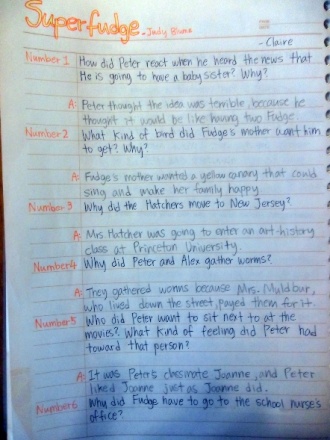 Superfudge - Judy Blume
- Claire
Number 1 How did Peter react when he heard the news that
He is going to have a baby sister? Why?
A: Peter thought the idea was terrible, because he
thought it would be like having two Fudge.
Number 2 What kind of bird did Fudge's mother want him
to get? Why?
A: Fudge's mother wanted a yellow canary that could
sing and make her family happy.
Number 3 Why did the Hatchers move to New Jersey?
A: Mrs. Hatcher was going to enter an art-history
class at Princeton University.
Number 4 Why did Peter and Alex gather worms?
A: They gathered worms because Mrs. Muldour,
who lived down the street, payed them for it.
Number 5 Who did Peter want to sit next to at the
movies? What kind of feeling did Peter had
toward that person?
A: It was Peter's classmate Joanne, and Peter
liked Joanne just as Joanne did.
Number 6 Why did Fudge have to go to the school nurse's
office?